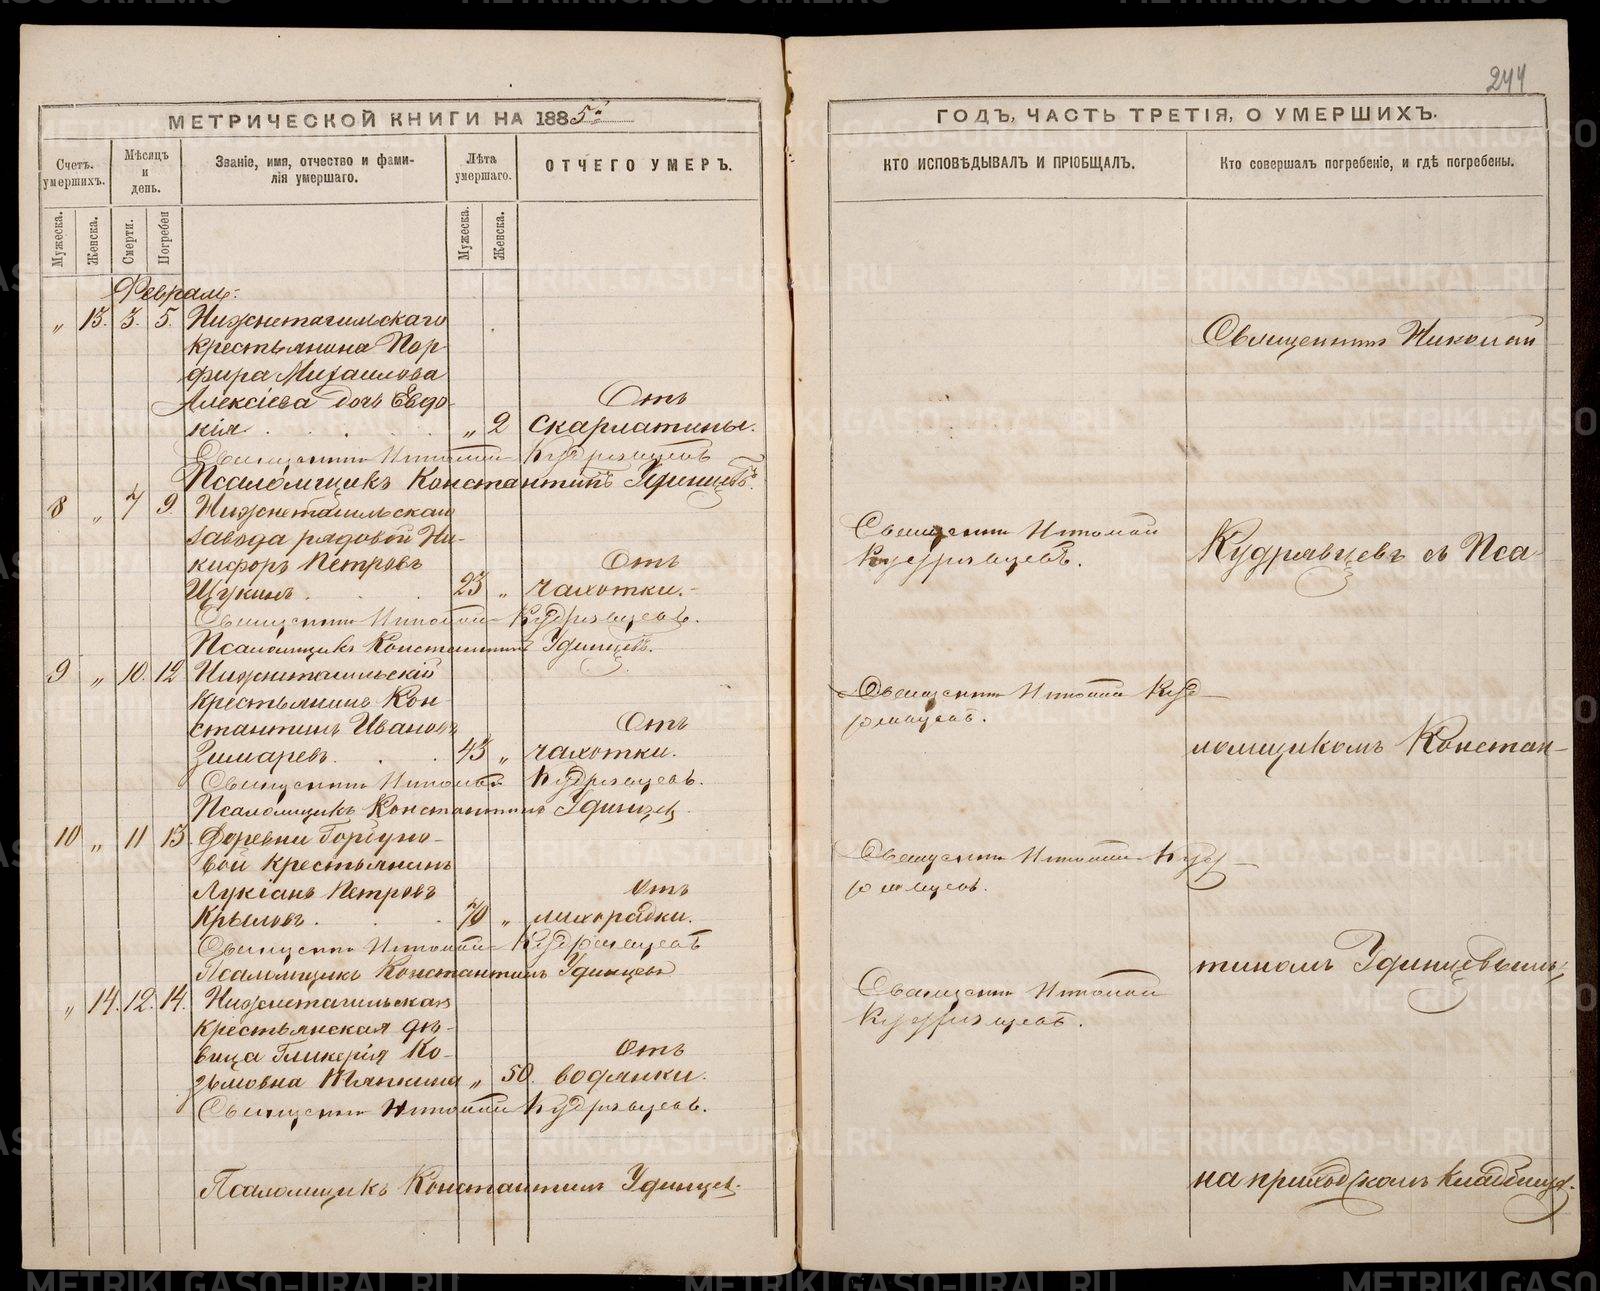 244
МЕТРИЧЕСКОЙ КНИГИ НА 1885й
ГОДЪ, ЧАСТЬ ТРЕТІЯ, О УМЕРШИХЪ.
Счетъ умершихъ.
Мѣсяцъ и день.
Званіе, имя, отчество и фами-
лія умершаго.
Лѣта умершаго.
ОТЧЕГО УМЕРЪ.
КТО ИСПОВѢДЫВАЛЪ И ПРІОБЩАЛЪ.
Кто совершалъ погребеніе, и гдѣ погребены.
Мужеска.
Женска.
Смерти.
Погребен
Мужеска.
Женска.
Февраль:
„ 13. 3. 5. Нижнетагильскаго
крестьянина Пор-
фира Михаилова
Алексіева дочь Евдо-
кія „ 2
Отъ
скарлатины.
Священникъ Николай Кудрявцевъ
Псаломщикъ Константинъ Удинцевъ.
8 „ 7 9. Нижнетагильскаго
завода рядовой Ни-
кифоръ Петровъ
Щукинъ 23 „
Отъ
чахотки.
Священникъ Николай Кудрявцевъ.
Псаломщикъ Константинъ Удинцевъ.
9 „ 10. 12 Нижнетагильскій
крестьянинъ Кон-
стантинъ Ивановъ
Зимаревъ. 43 „
Отъ
чахотки.
Священникъ Николай Кудрявцевъ.
Псаломщикъ Константинъ Удинцев
10 „ 11 13. Деревни Горбуно-
вой крестьянинъ
Лукіанъ Петровъ
Крыловъ. 70 „
Отъ
лихорадки.
Священникъ Николай Кудрявцевъ
Псаломщикъ Константинъ Удинцевъ
„ 14. 12. 14. Нижнетагильская
крестьянская дѣ-
вица Гликерія Ко-
зьмовна Тяпкина „ 50.
Отъ
водянки.
Священникъ Николай Кудрявцевъ.
Псаломщикъ Константинъ Удинцев.
Священникъ Николай
Кудрявцевъ.
Священникъ Николай Куд-
рявцевъ.
Священникъ Николай Куд-
рявцевъ.
Священникъ Николай
Кудрявцевъ.
Священникъ Николай
Кудрявцевъ съ Пса-
ломщикомъ Констан-
тиномъ Удинцевымъ
на приходскомъ кладбищѣ.
METRIKI.GASO-URAL.RU